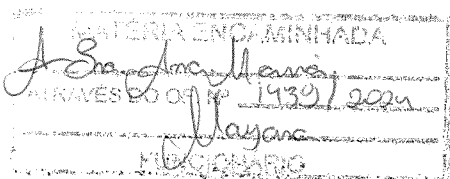 MATÉRIA ENCAMINHADA
A Sra. Ana
ATRAVÉS DO OF. Nº 1439 / 2024
Mayara
FUNCIONÁRIO